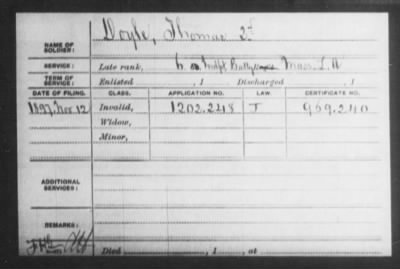 NAME OF SOLDIER: Doyle, Thomas 2d
SERVICE: Late rank, Indpt Batty Mass. L A
TERM OF SERVICE: Enlisted , 1 Discharged , 1
DATE OF FILING. CLASS. APPLICATION NO. LAW CERTIFICATE NO.
1897 Nov 12 Invalid, 1202.248 J 969.240
Widow,
Minor,
ADDITIONAL SERVICES:
REMARKS:
Died , 1 , at